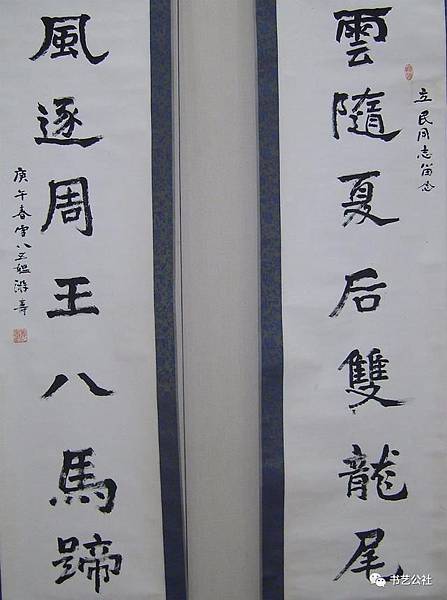 雲隨夏后雙龍尾
立民同志留念
風逐周王八馬蹄
庚午春雪八五媪游壽
书艺公社